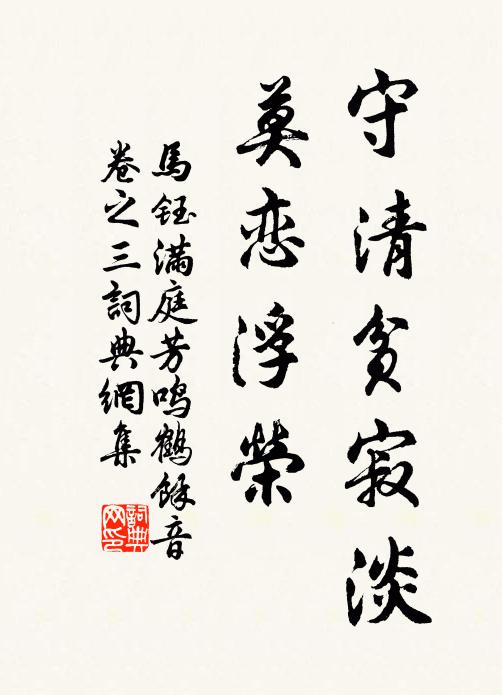 守清貧寂淡
莫恋浮榮
馬鈺滿庭芳鳴鶴餘音
卷之三詞典網集
詞典网印